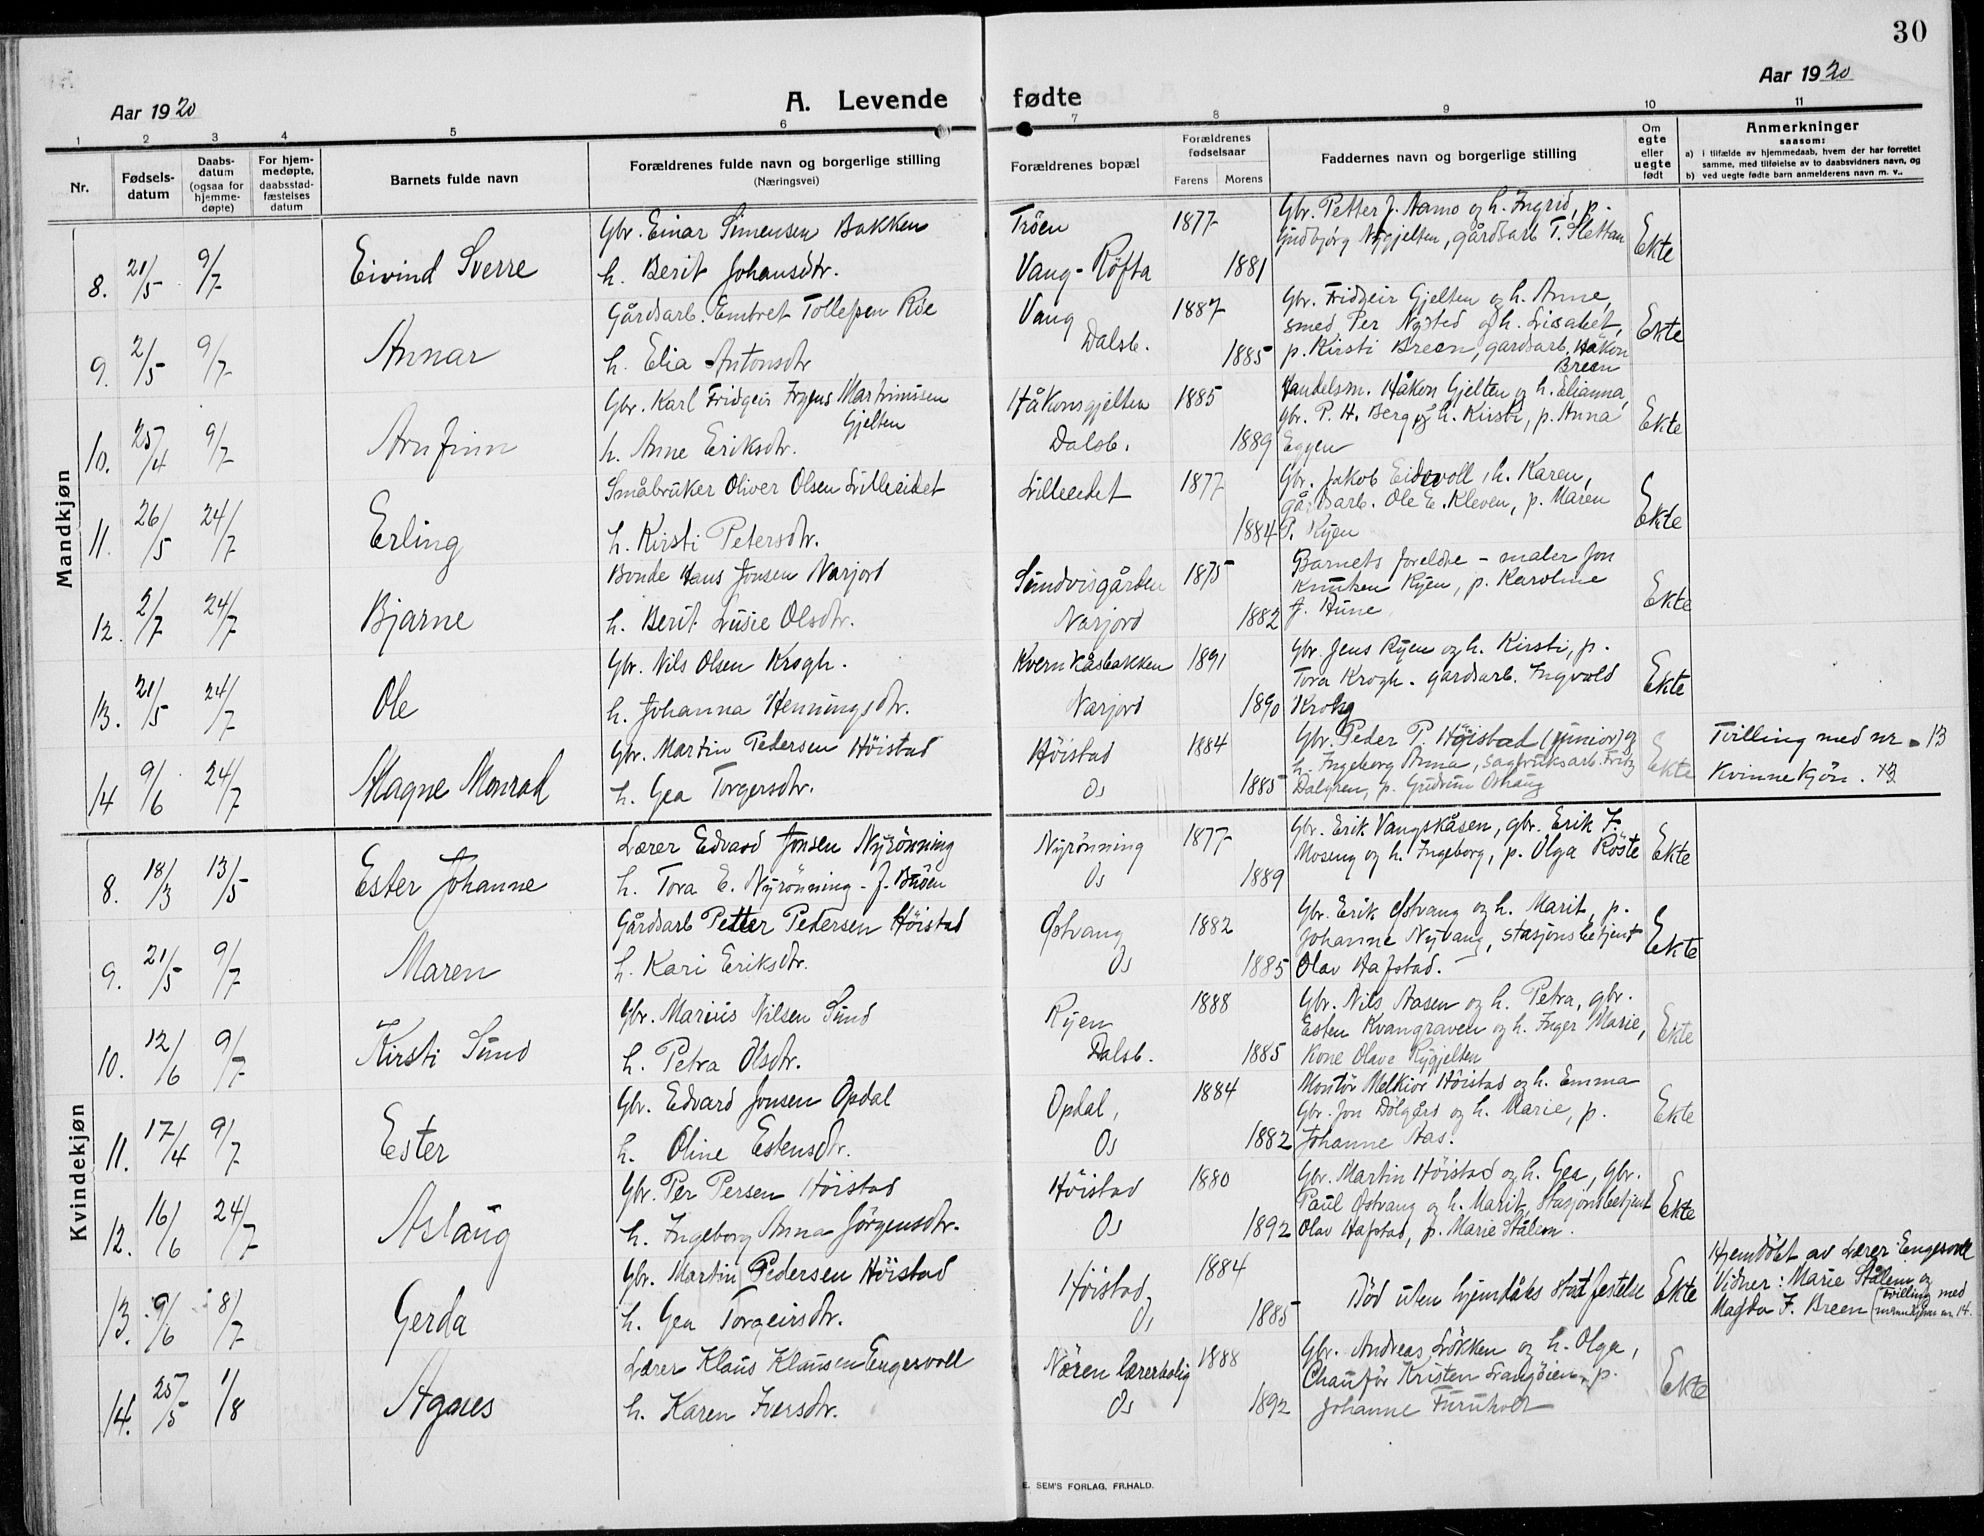 30
Aar 1920
A. Levende fødte
Aar 1920
1 2 3 4 5 6 7 8 9 10 11
Nr.
Fødsels-
datum
Daabs-
datum
(ogsaa for
hjemme-
døpte)
For hjem-
medøpte,
daabsstad-
fæstelses
datum
Barnets fulde navn
Forældrenes fulde navn og borgerlige stilling
(Næringsvei)
Forældrenes bopæl
Forældrenes
fødselsaar
Farens Morens
Faddernes navn og borgerlige stilling
Om
egte
eller
uegte
født
Anmerkninger
saasom:
a) i tilfælde av hjemmedaab, hvem der har forrettet
samme, med tilføielse av to daabsvidners navn, og
b) ved uegte fødte barn anmelderens navn m. v..
Mandkjøn
Gbr. Einar Simensen Bakken Trõen 1877 Gbr. Petter J. Aamo og h. Ingrid, p.
Gudbjørg Nygjelten, gårdsarb T. Slettan
8. 21/5 9/7 Eivind Sverre h. Berit Johansdtr. Vang - Röfta 1881 Ekte
Gårdsarb. Embret Tollefsen Röe Vang 1887 Gbr. Fridgeir Gjelten og h. Anne,
smed Per Nysted og h. Lisabet,
9. 2/5 9/7 Annar h. Elia Antonsdtr Dalsb. 1885 p. Kirsti Breen, gardsarb. Håkon Ekte
Breen
Gbr. Karl Fridgeir Martinussen Håkonsgjelten 1885 Handelsm. Håkon Gjelten og h. Elianna,
Gjelten gbr. P. H. Berg og h. Kirsti, p. Anna
10. 25/4 9/7 Arnfinn h. Anne Eriksdtr. Dalsb. 1889 Eggen Ekte
Småbruker Oliver Olsen Lilleeidet Lilleeidet 1877 Gbr. Jakob Eidsvoll, h. Karen,
gårdsarb. Ole E. Kleven, p. Maren
11. 26/5 24/7 Erling h. Kirsti Petersdtr. 1884 P. Ryen Ekte
Bonde Hans Jonsen Narjord Sundvisgården 1875 Barnets foreldre - maler Jon
Knutsen Ryen, p. Karoline
12. 2/7 24/7 Bjarne h. Berit Lusie Olsdtr. Narjord 1882 J. Hune Ekte
Gbr. Nils Olsen Krogh. Kvernkåsbakken 1891 Gbr. Jens Ryen og h. Kirsti, p.
Tora Krogh. gardsarb. Ingvald
13. 21/5 24/7 Ole h. Johanna Henningsdtr. Narjord 1890 Krohg Ekte
Gbr. Martin Pedersen Höistad Höistad 1884 Gbr. Peder P. Höistad (junior) og Tvilling med nr. 13
h. Ingeborg Anna, sagbruksarb. Kvinnekjön.
14 9/6 24/7 Magne Monrad h. Gea Torgersdtr. Os 1885 Dalgren, p. Gudrun Oshaug Ekte
Kvindekjøn
Lærer Edvard Jonsen Nyrönning Nyrönning 1877 Gbr. Erik Vangskåsen, gbr. Erik F.
8. 18/3 13/5 Ester Johanne h. Tora E. Nyrönning - f. Buöen Os 1889 Moseng og h. Ingeborg, p. Olga Röste Ekte
Gårdsarb Petter Pedersen Höistad Østvang 1882 Gbr. Erik Østvang og h. Marit, p.
Johanne Nyvang, stasjonsbetjent
9. 21/5 9/7 Maren h. Kari Eriksdtr. Os 1885 Olav Hafstad. Ekte
Gbr. Marius Nilsen Sund Ryen 1888 Gbr. Nils Aasen og h. Petra, gbr.
Esten Kvangraven og h. Inger Marie,
10. 12/6 9/7 Kirsti Sund h. Petra Olsdtr. Dalsb. 1885 Kone Olava Rygjelten Ekte
Gbr. Edvard Jonsen Opdal Opdal, 1884 Montør Melkior Höistad og h. Emma
Gbr. Jon Dölgård og h. Marie, p.
11. 17/4 9/7 Ester h. Oline Estensdtr. Os 1882 Johanne Aas. Ekte
Gbr. Per Persen Höistad Höistad 1880 Gbr. Martin Höistad og h. Gea, gbr.
Paul Østvang og h. Marit, Stasjonsbetjent
12. 16/6 24/7 Aslaug h. Ingeborg Anna Jörgensdtr. Os 1892 Olav Hafstad, p. Marie Stålen. Ekte
Gbr. Martin Pedersen Höistad Höistad 1884 Död uten hjemdåbs stadfestelse Hjemdöbt av Lærer Engesvoll
Vidner: Marie Stålem og
13. 9/6 8/7 Gerda h. Gea Torgeirsdtr. Os 1885 Ekte Magda F. Breen (tvilling med
mannkjønn nr. 14.
Lærer Klaus Klausen Engesvoll Nören lærerbolig 1888 Gbr. Andreas Lökken og h. Olga,
Chaufför Kristen Langöien, p.
14. 25/5 1/8 Agnes h. Karen Iversdtr. Os 1892 Johanne Furuholt Ekte
E. SEM'S FORLAG, FR.HALD.